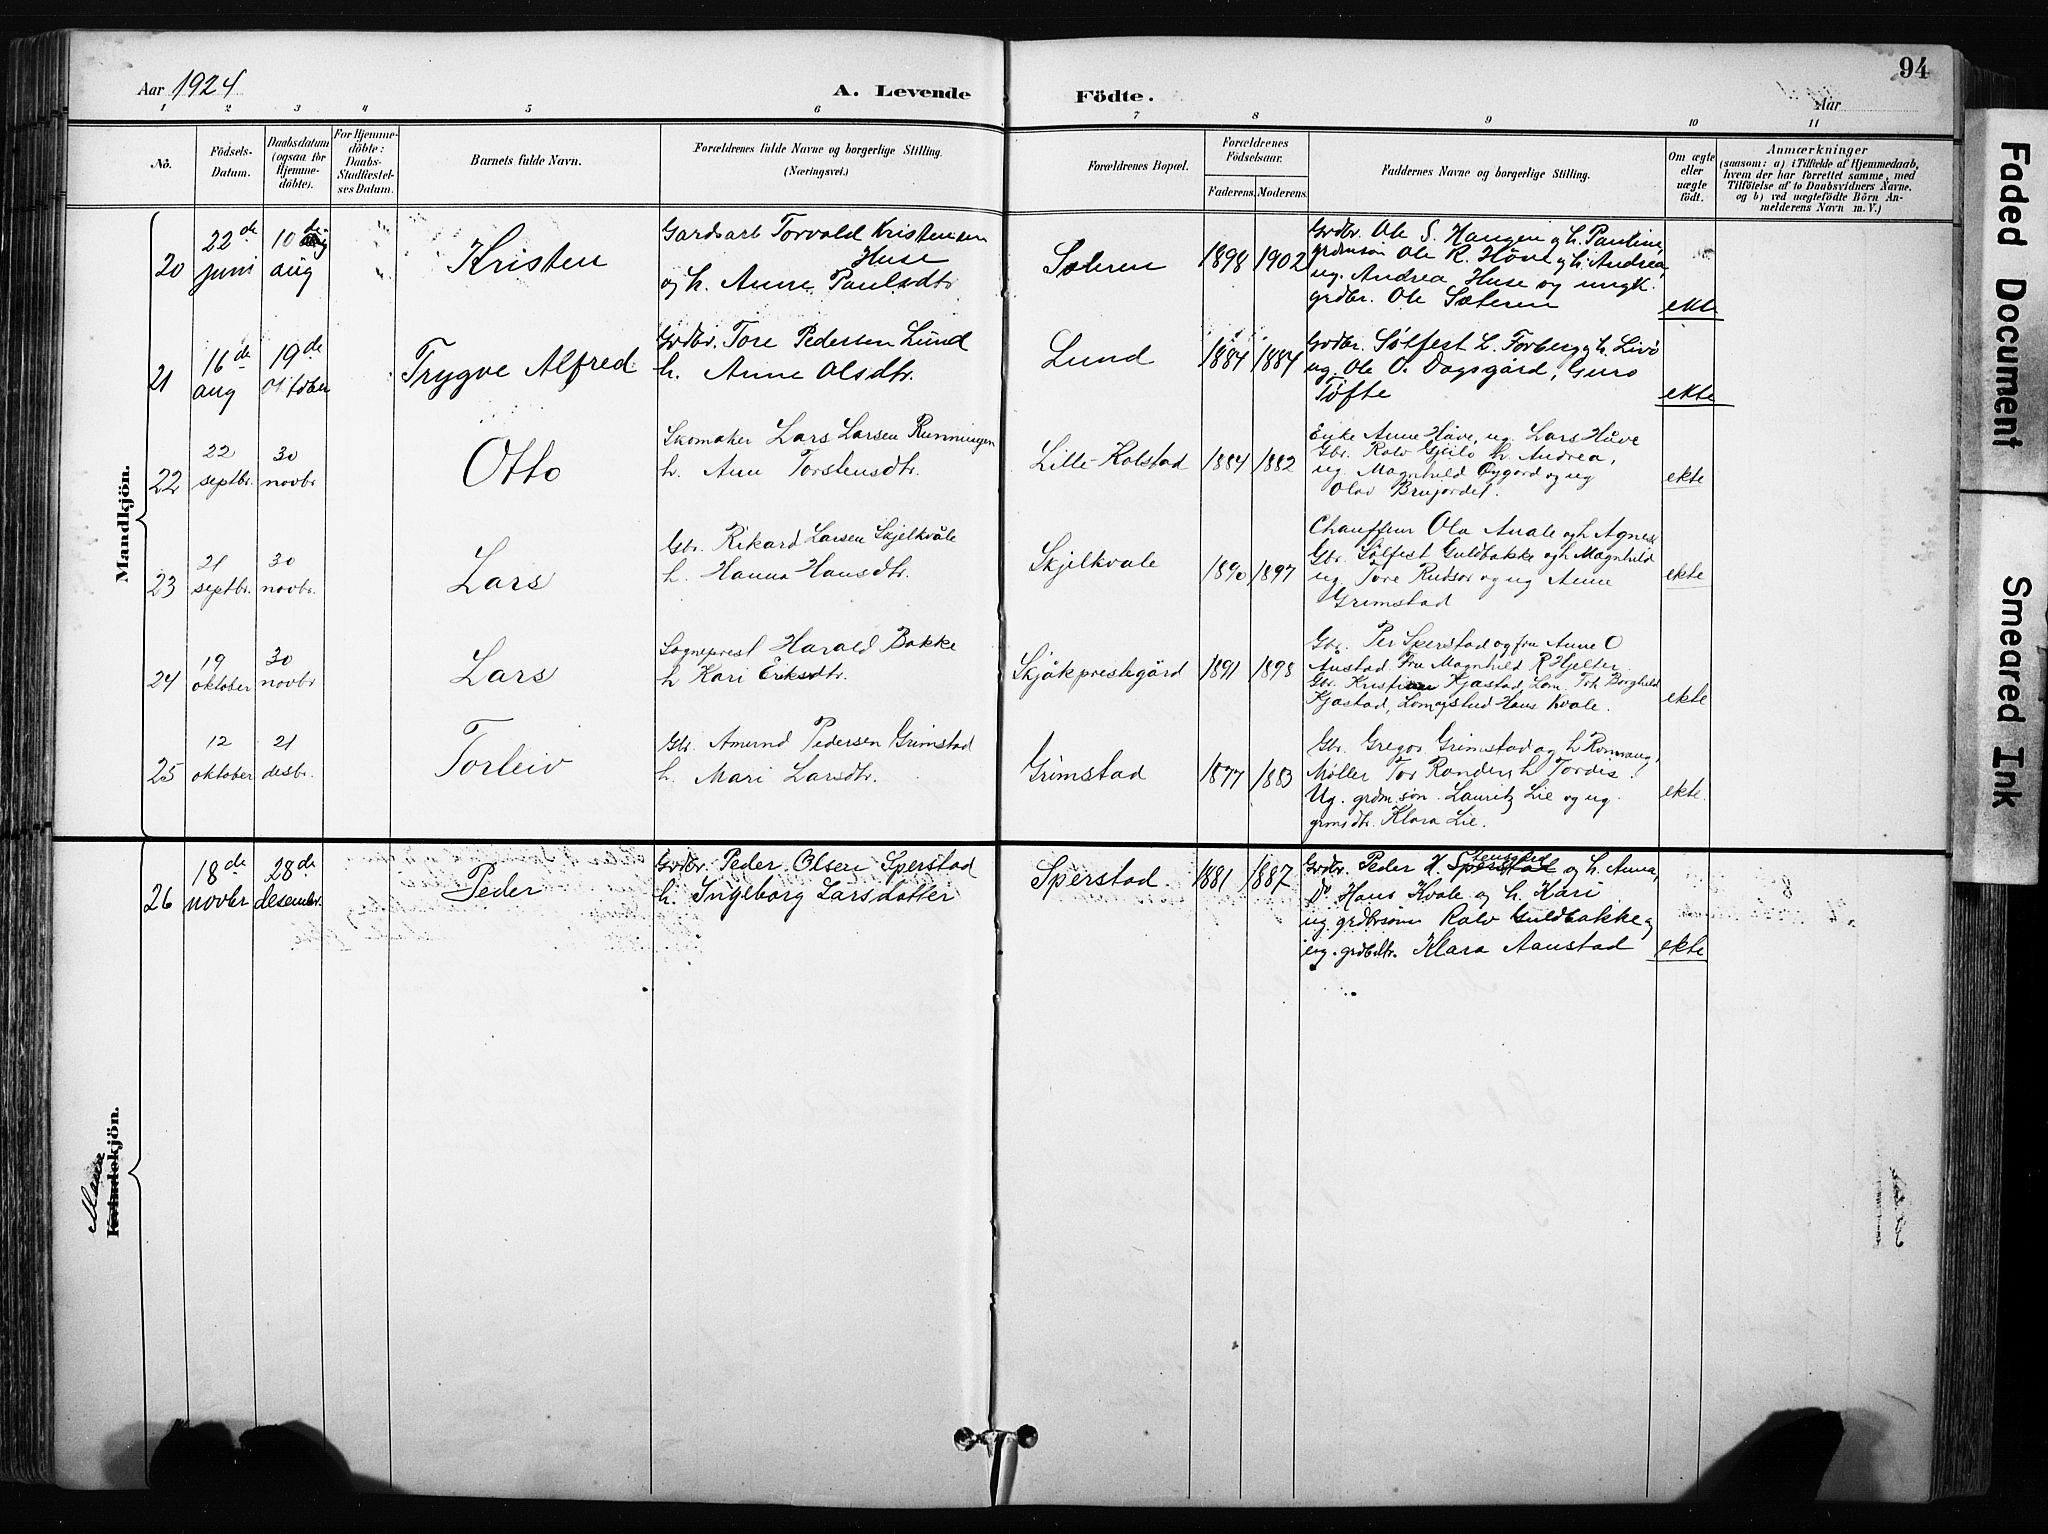 94
Aar 1924
A. Levende Födte.
Aar
1 2 3 4 5 6 7 8 9 10 11
No.
Födsels-Datum.
Daabsdatum (ogsaa for Hjemmedöbte).
For Hjemmedöbte: Daabs-Stadfæstelses Datum.
Barnets fulde Navn.
Forældrenes fulde Navne og borgerlige Stilling.
(Næringsvei.)
Forældrenes Bopæl.
Forældrenes Födselsaar.
Faderens. Moderens.
Faddernes Navne og borgerlige Stilling.
Om ægte eller uægte födt.
Anmærkninger
(saasom: a) i Tilfælde af Hjemmedaab, hvem der har forrettet samme, med Tilföielse af to Daabsvidners Navne. og b) ved uægtefödte Börn Anmelderens Navn m. V.)
Mandkjön.
20
22de juni
10de aug
Kristen
Gardsarb Torvald Kristensen
Huse
og h. Anne Paulsdtr
Sæteren
1898 1902
Grdbr. Ole S. Haugen og h. Pauline,
grdmsøn Ole R. Höve og h. Andrea
ug. Andrea Huse og ungk.
grdbr. Ole Sæteren
ekte
21
16de aug
19de oktober
Trygve Alfred
Grdbr. Tore Pedersen Lund
h. Anne Olsdtr.
Lund
1884 1884
Grdbr. Sølfest L. Forberg og h. Livö
ug. Ole O. Dagsgård, Guro
Tøfte
ekte
22
22 septbr.
30 novbr
Otto
Skomaker Lars Larsen Runningen
h. Ann Torstensdtr.
Lille-Kolstad
1884 1882
Enke Anne Håve, ug. Lars Håve
Gbr. Ralv Gjeilo h. Andrea,
ug. Magnhild Øygard og ug
Olav Brujordet.
ekte
23
21 septbr.
30 novbr.
Lars
Gbr. Rikard Larsen Skjelkvåle
h. Hanna Hansdtr.
Skjelkvale
1890 1897
Chauffeur Ola Avale og h Agnes
Gbr. Sølfest Guldbakke og h Magnhild
ug. Tore Rudsor og ug Anne
Grimstad
ekte
24
19 oktober
30 novbr
Lars
Sogneprest Harald Bakke
h Kari Eriksdtr.
Skjåk prestegård
1891 1898
Gbr. Per Sperstad og fru Anne O
Åustad Fru Magnhild R Hjelter
Gbr. Kristian Kjæstad, Lom. Frk Borghild
Kjæstad, Lom og stud Hans Kvale.
ekte
25
12 oktober
21 desbr.
Torleiv
Gbr. Amund Pedersen Grimstad
h. Mari Larsdtr.
Grimstad
1877 1883
Gbr. Gregor Grimstad og h Ronnaug,
Møller Tor Randen, h Tordis.
Ug. grdm.søn. Lauritz Lie og ug.
grmsdtr. Klara Lie.
ekte.
Mann
Kvindekjön.
26
18de novbr
28de desember.
Peder
Grdbr. Peder Olsen Sperstad
h. Ingeborg Larsdatter
Sperstad.
1881 1887
Grdbr. Peder H. Sperstad og h. Anna,
Do Hans Kvale og h. Kari
ug. grdbrsønn Ralv Guldbakke og
ug. grdbdtr. Klara Aanstad
ekte
Faded Document
Smeared Ink